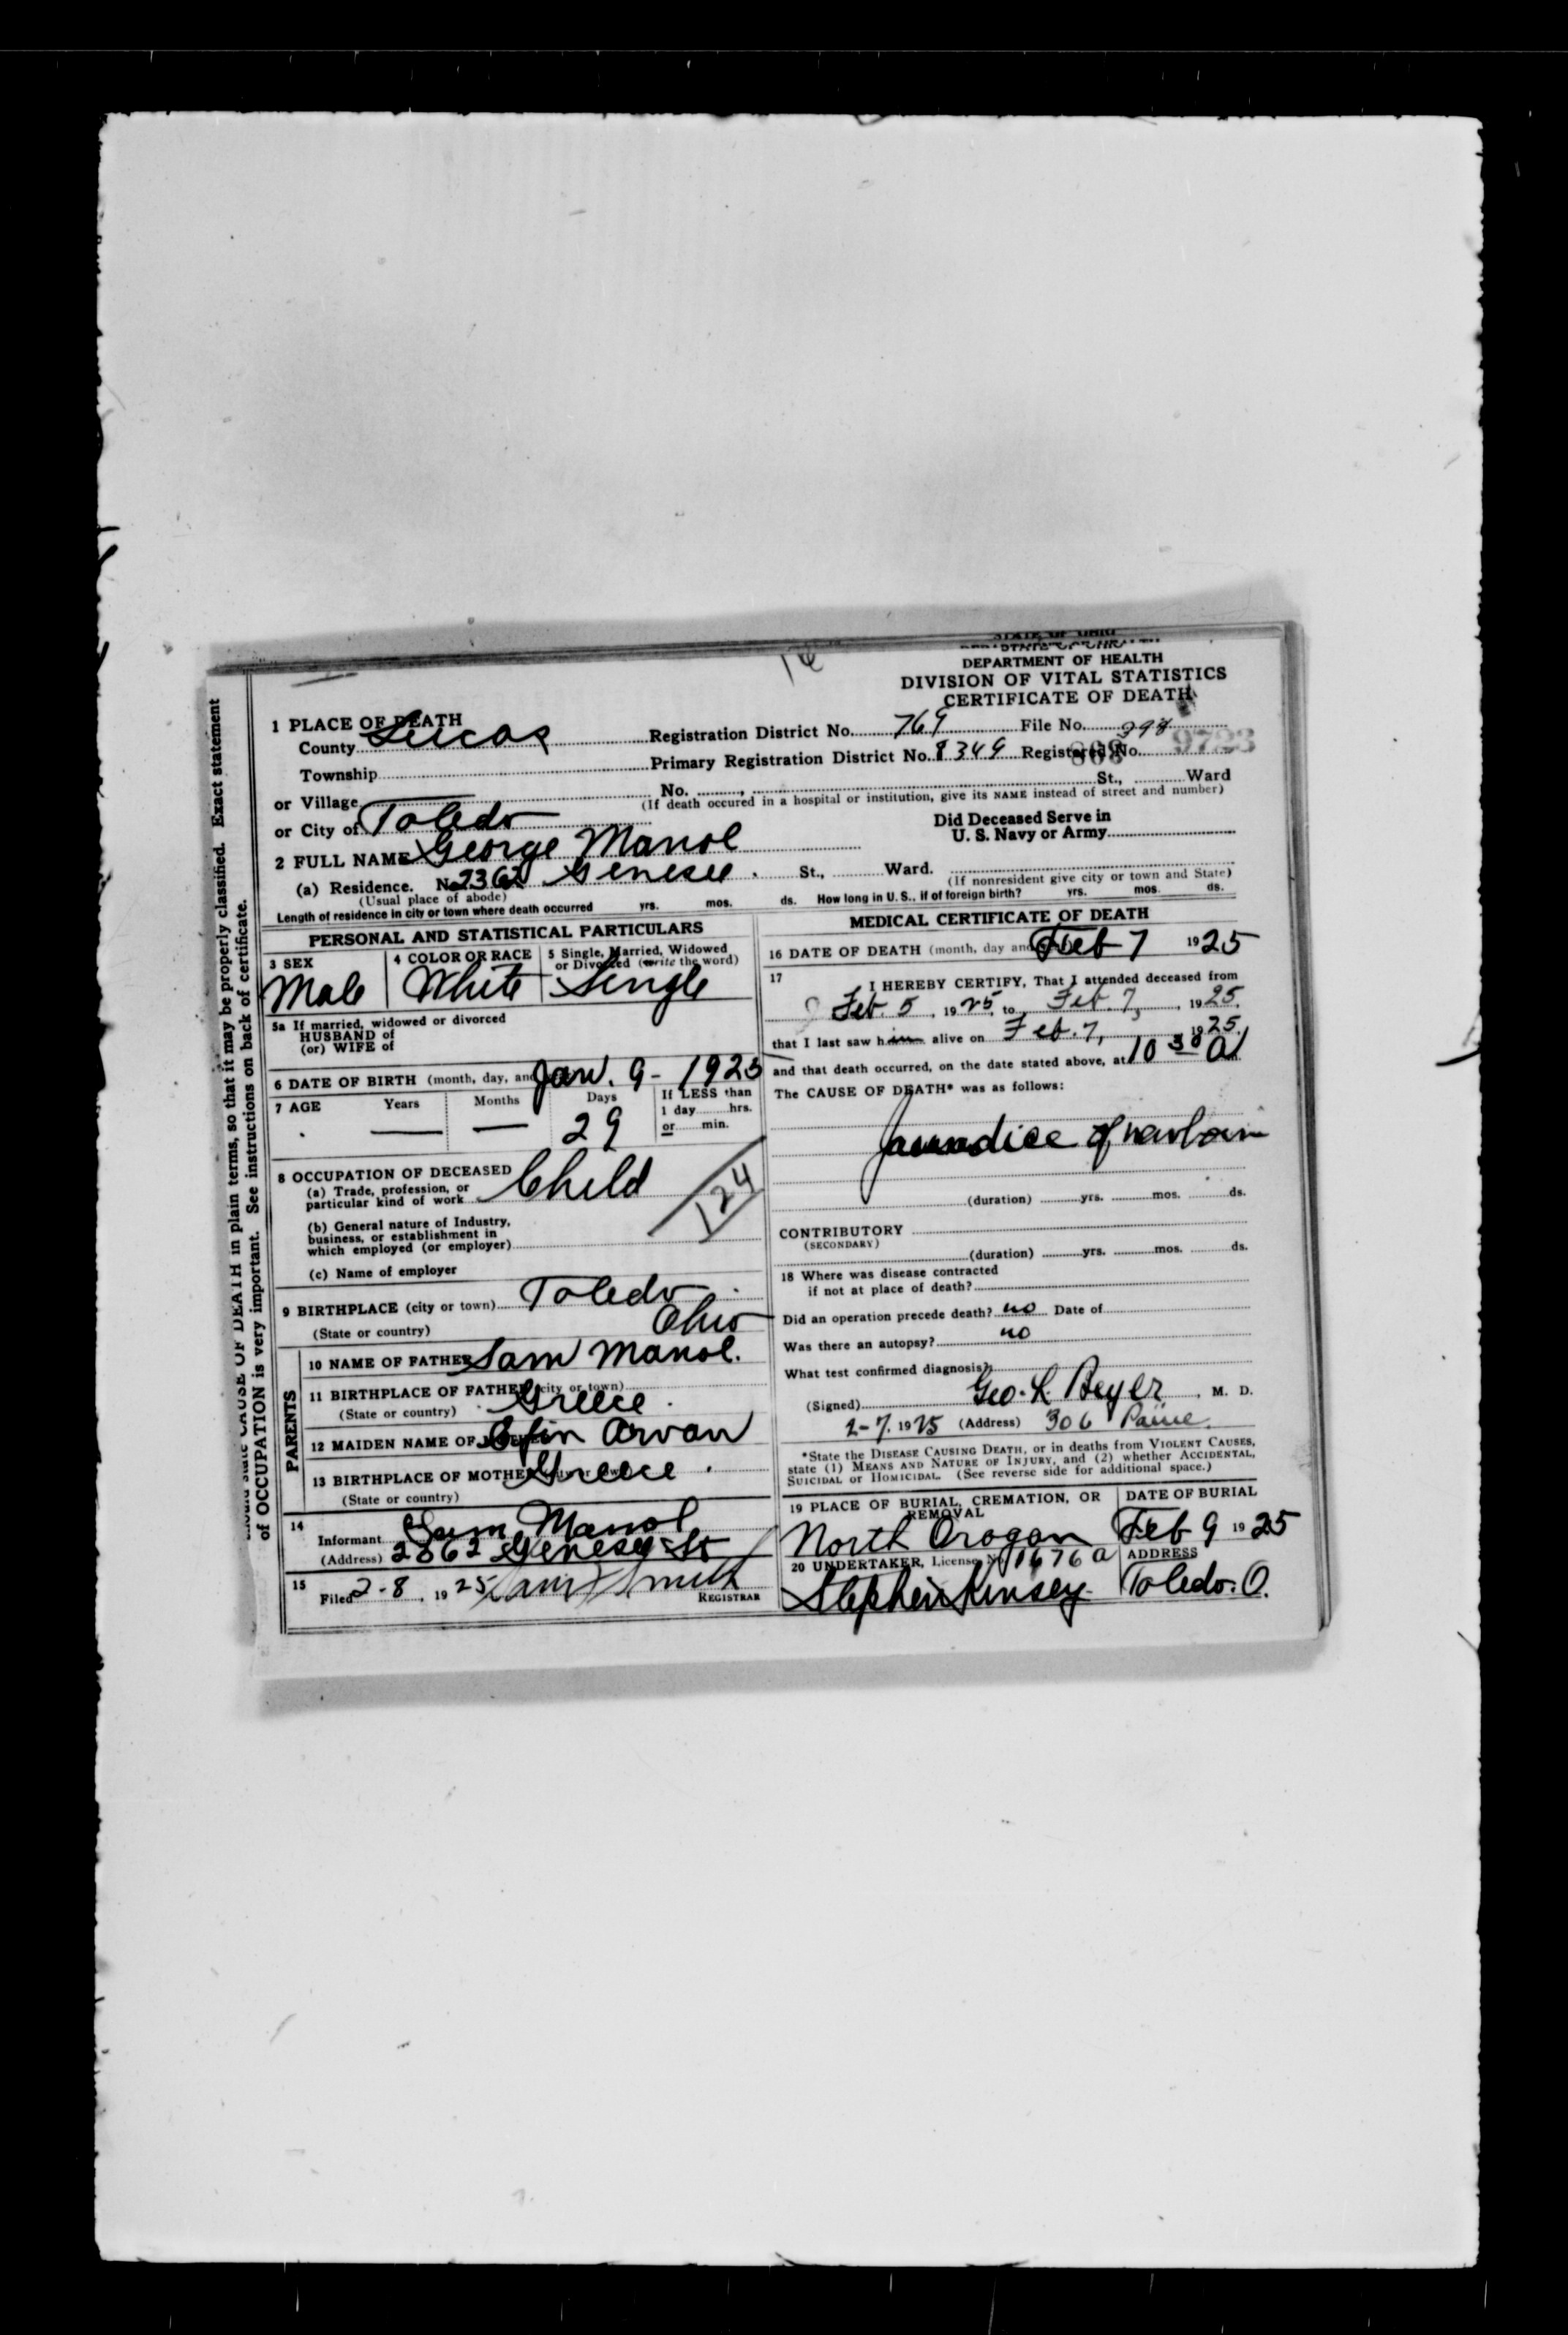 DEPARTMENT OF HEALTH
DIVISION OF VITAL STATISTICS
CERTIFICATE OF DEATH
1 PLACE OF DEATH
County Lucas Registration District No. 769 File No. 398
Township Primary Registration District No. 8349 Registered No. 868 9723
or Village No. , St., Ward
(If death occured in a hospital or institution, give its NAME instead of street and number)
or City of Toledo
Did Deceased Serve in
U. S. Navy or Army
2 FULL NAME George Manol
(a) Residence. No. 2362 Genesee St., Ward.
(Usual place of abode) (If nonresident give city or town and State)
Length of residence in city or town where death occurred yrs. mos. ds. How long in U. S., if of foreign birth? yrs. mos. ds.
PERSONAL AND STATISTICAL PARTICULARS
3 SEX 4 COLOR OR RACE 5 Single, Married, Widowed
or Divorced (write the word)
Male White Single
5a If married, widowed or divorced
HUSBAND of
(or) WIFE of
6 DATE OF BIRTH (month, day, and Jan. 9 - 1925
7 AGE Years Months Days If LESS than
1 day hrs.
or min.
— — 29
8 OCCUPATION OF DECEASED
(a) Trade, profession, or
particular kind of work Child
124
(b) General nature of Industry,
business, or establishment in
which employed (or employer)
(c) Name of employer
9 BIRTHPLACE (city or town) Toledo
(State or country) Ohio
PARENTS
10 NAME OF FATHER Sam Manol.
11 BIRTHPLACE OF FATHER (city or town)
(State or country) Greece.
12 MAIDEN NAME OF Arvan
13 BIRTHPLACE OF MOTHER Greece.
(State or country)
14
Informant Sam Manol
(Address) 2862 Genesee St
15
Filed 2-8, 1925 Smith
REGISTRAR
MEDICAL CERTIFICATE OF DEATH
16 DATE OF DEATH (month, day and Feb 7 1925
17 I HEREBY CERTIFY, That I attended deceased from
Feb. 5, 1925, to Feb. 7, 1925,
that I last saw him alive on Feb. 7, 1925,
and that death occurred, on the date stated above, at 10 30 a
The CAUSE OF DEATH* was as follows:
Jaundice of newborn
(duration) yrs. mos. ds.
CONTRIBUTORY
(SECONDARY)
(duration) yrs. mos. ds.
18 Where was disease contracted
if not at place of death?
Did an operation precede death? no Date of
Was there an autopsy? no
What test confirmed diagnosis?
(Signed) Geo. L. Beyer, M. D.
2-7, 1925 (Address) 306 Paine
*State the DISEASE CAUSING DEATH, or in deaths from VIOLENT CAUSES,
state (1) MEANS AND NATURE OF INJURY, and (2) whether ACCIDENTAL,
SUICIDAL or HOMICIDAL. (See reverse side for additional space.)
19 PLACE OF BURIAL, CREMATION, OR
REMOVAL
DATE OF BURIAL
North Oragon Feb 9 1925
20 UNDERTAKER, License No. 1676 a ADDRESS
Stephen Kinsey Toledo. O.
CAUSE OF DEATH in plain terms, so that it may be properly classified. Exact statement
of OCCUPATION is very important. See instructions on back of certificate.